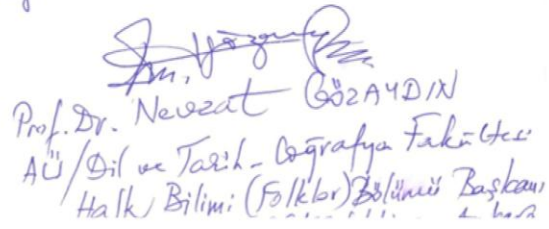 Prof. Dr. Nevzat GÖZAYDIN
AÜ/Dil ve Tarih-Coğrafya Fakültesi
Halk Bilimi (Folklor) Bölümü Başkanı